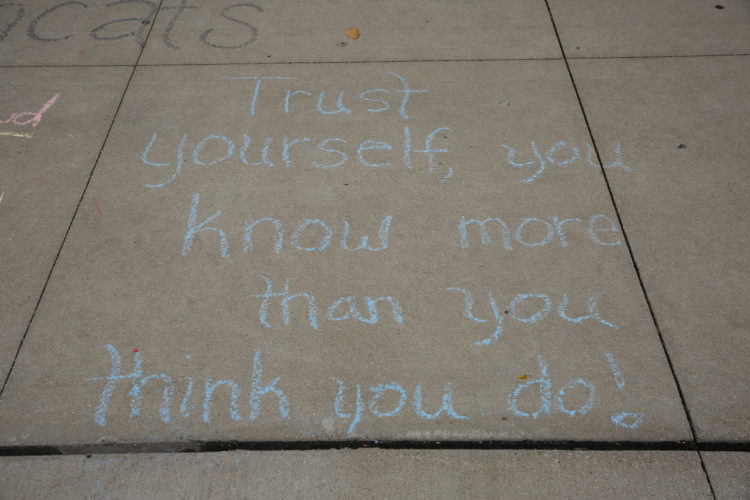 Trust
yourself, you
know more
than you
think you do!